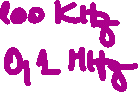 100 KHz
0,1 MHz